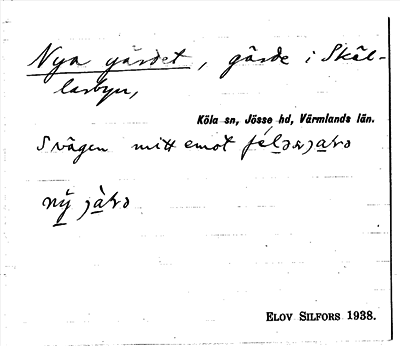 Nya gärdet, gärde i Skäl-
larbyn,
Köla sn, Jösse hd, Värmlands län.
S vägen mitt emot
ELOV SILFORS 1938.